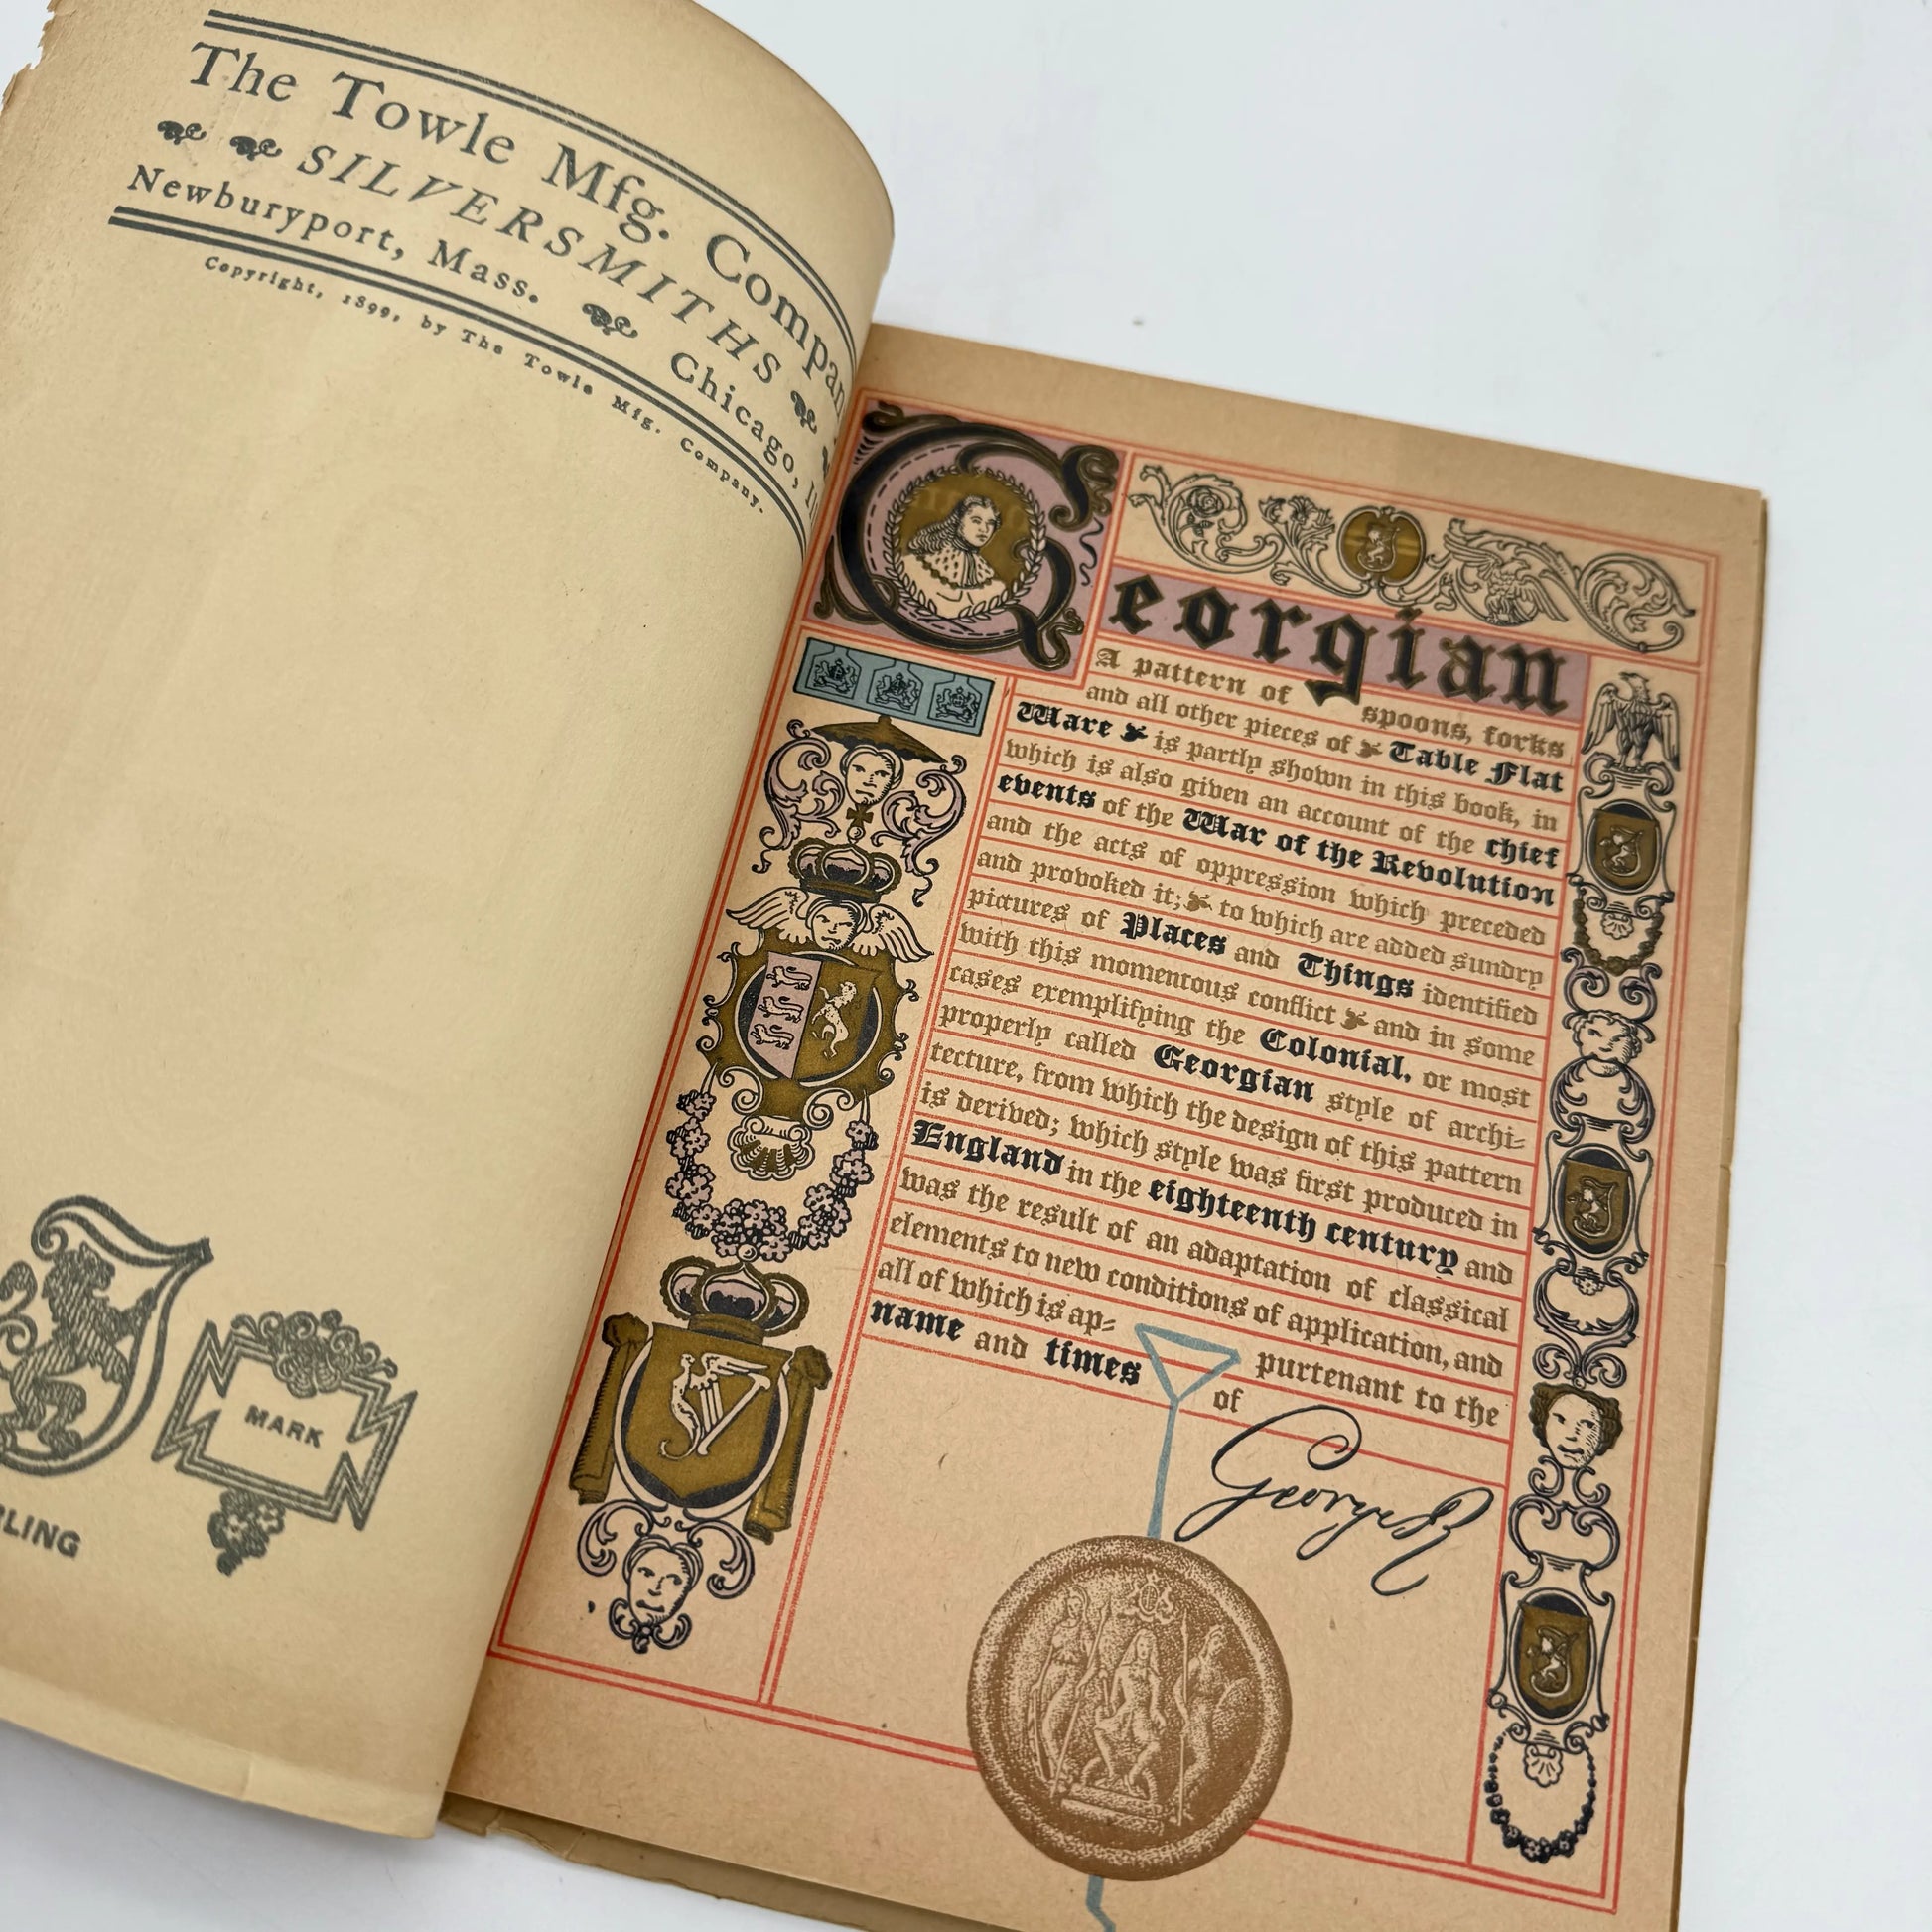 The Towle Mfg. Company
SILVERSMITHS
Newburyport, Mass. Chicago,
Copyright, 1899, by The Towle Mfg. Company.
MARK
Georgian
A pattern of spoons, forks
and all other pieces of Table Flat
Ware is partly shown in this book, in
which is also given an account of the chief
events of the War of the Revolution
and the acts of oppression which preceded
and provoked it; to which are added sundry
pictures of Places and Things identified
with this momentous conflict and in some
cases exemplifying the Colonial, or most
properly called Georgian style of archi-
tecture, from which the design of this pattern
is derived; which style was first produced in
England in the eighteenth century and
was the result of an adaptation of classical
elements to new conditions of application, and
all of which is ap- purtenant to the
name and times of
George R